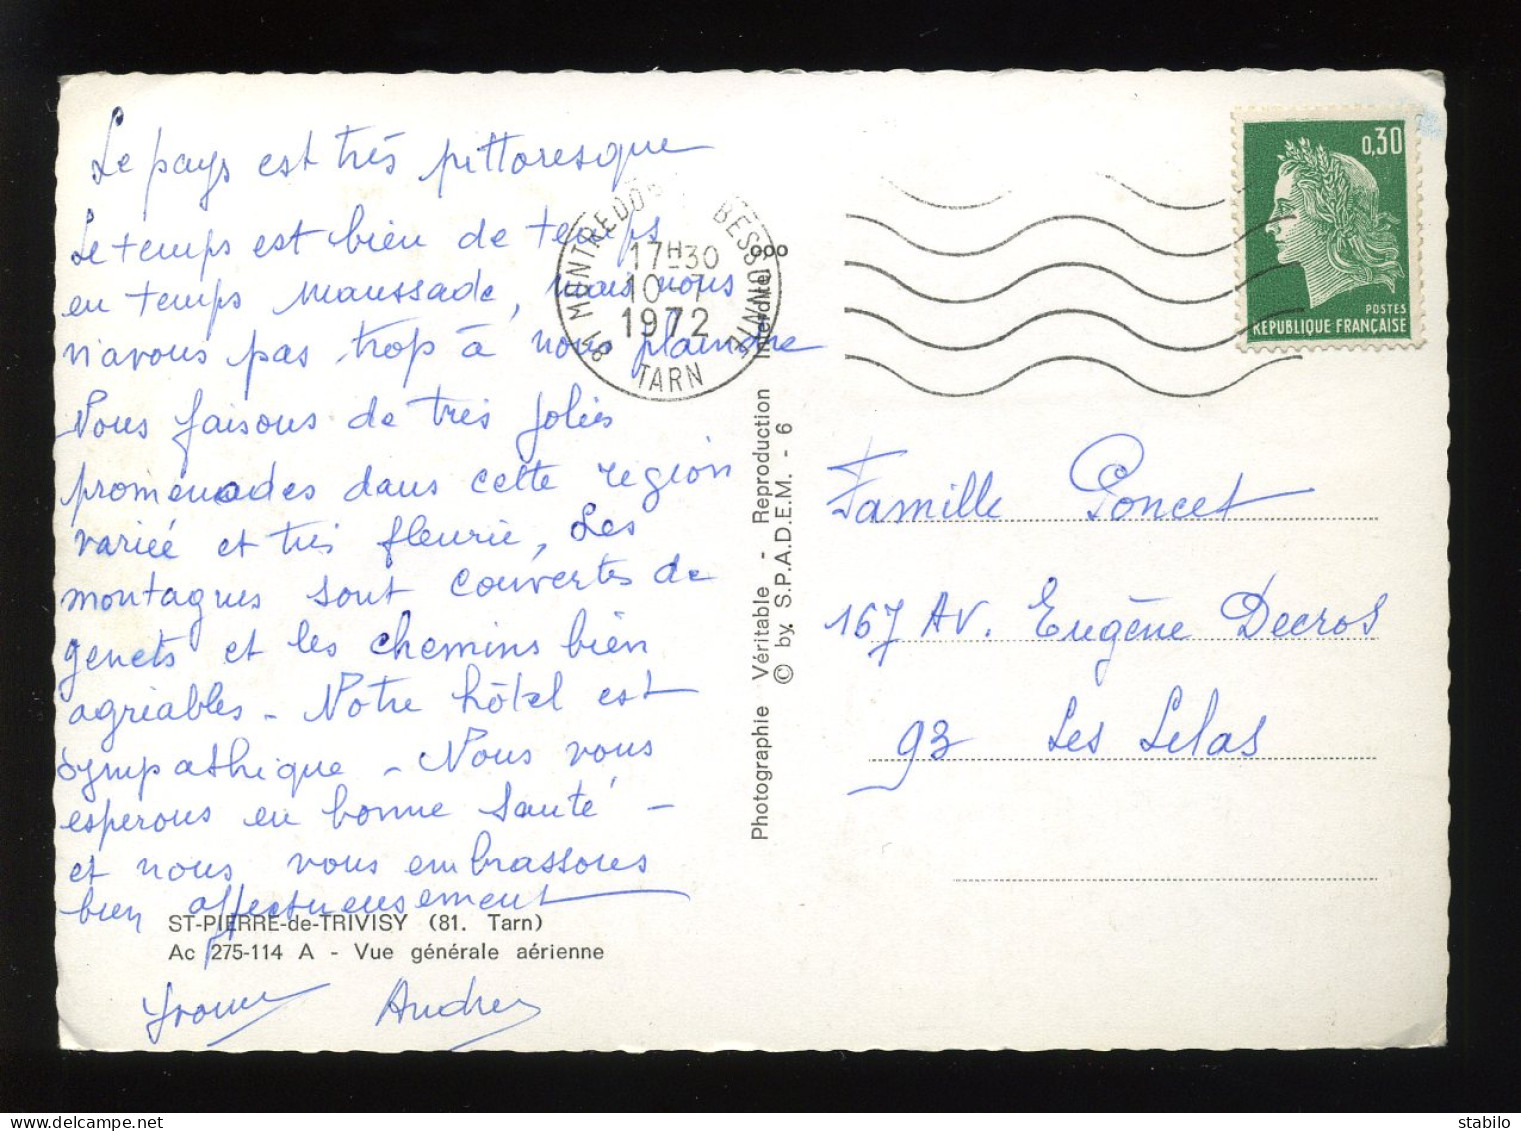 Le pays est très pittoresque
Le temps est bien de temps
en temps maussade, mais nous
n'avons pas trop à nous plaindre
Nous faisons de très jolies
promenades dans cette région
variée et très fleurie, Les
montagnes sont couvertes de
genets et les chemins bien
agréables - Notre hôtel est
sympathique - Nous vous
esperons en bonne santé -
et nous vous embrassons
bien affectueusement
ST-PIERRE-de-TRIVISY (81. Tarn)
Ac 275-114 A - Vue générale aérienne
Yvonne Andrey
81 MONTREDON BESSONNIE
17H30
10-7
1972
TARN
Photographie Véritable - Reproduction Interdite
© by. S.P.A.D.E.M. - 6
0,30
POSTES
REPUBLIQUE FRANÇAISE
Famille Poncet
167 Av. Eugène Decros
93 Les Lilas
stabilo